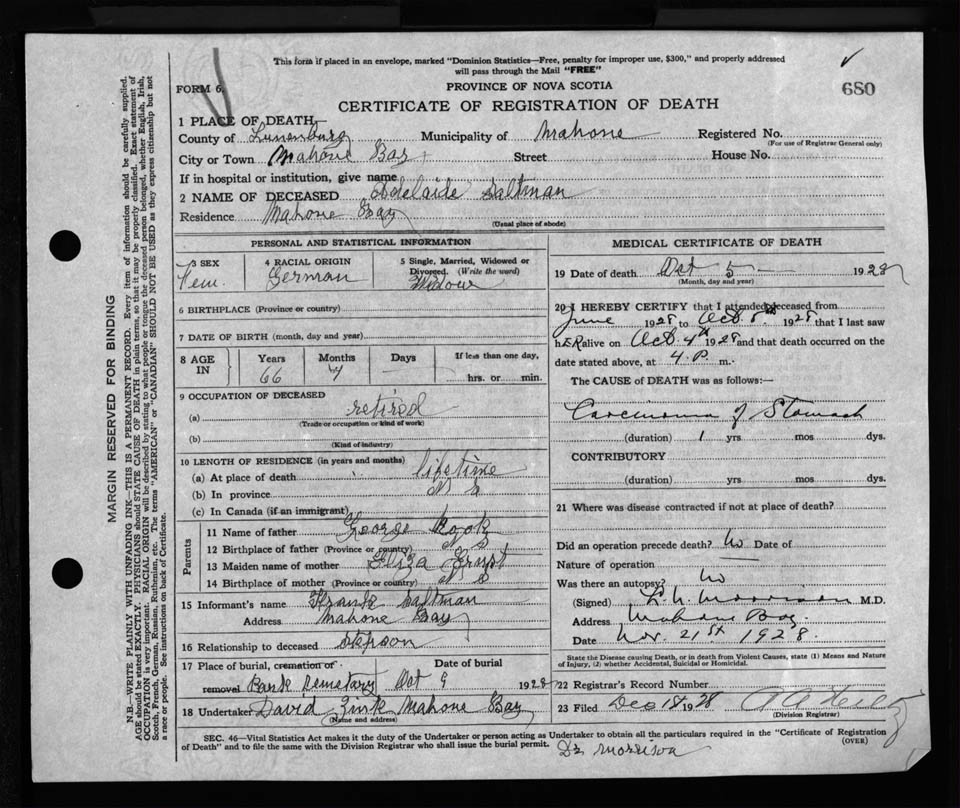 This form if placed in an envelope, marked "Dominion Statistics—Free, penalty for improper use, $300," and properly addressed
will pass through the Mail "FREE"
FORM 6. PROVINCE OF NOVA SCOTIA 680
CERTIFICATE OF REGISTRATION OF DEATH
1 PLACE OF DEATH
County of Lunenburg Municipality of Mahone Registered No.
(For use of Registrar General only)
City or Town Mahone Bay Street House No.
If in hospital or institution, give name
2 NAME OF DECEASED Adelaide Saltman
Residence Mahone Bay
(Usual place of abode)
PERSONAL AND STATISTICAL INFORMATION
3 SEX 4 RACIAL ORIGIN 5 Single, Married, Widowed or
Divorced. (Write the word)
Fem. German Widow
6 BIRTHPLACE (Province or country)
7 DATE OF BIRTH (month, day and year)
8 AGE IN Years Months Days If less than one day,
66 7 — hrs. or min.
9 OCCUPATION OF DECEASED
(a) retired
(Trade or occupation or kind of work)
(b)
(Kind of industry)
10 LENGTH OF RESIDENCE (in years and months)
(a) At place of death lifetime
(b) In province N S
(c) In Canada (if an immigrant)
Parents
11 Name of father George
12 Birthplace of father (Province or country) N S
13 Maiden name of mother Eliza Ernst
14 Birthplace of mother (Province or country) N S
15 Informant's name Frank Saltman
Address Mahone Bay
16 Relationship to deceased stepson
17 Place of burial, cremation or Date of burial
removal Park Cemetary Oct 9 1928
18 Undertaker David Zink Mahone Bay
(Name and address)
MEDICAL CERTIFICATE OF DEATH
19 Date of death Oct 5 — 1928
(Month, day and year)
20 I HEREBY CERTIFY that I attended deceased from
June 1928 to Oct 5th 1928 that I last saw
hER alive on Oct 4th 1928 and that death occurred on the
date stated above, at 4 P. m.
The CAUSE of DEATH was as follows:—
Carcinoma of Stomach
(duration) 1 yrs mos dys.
CONTRIBUTORY
(duration) yrs mos dys.
21 Where was disease contracted if not at place of death?
Did an operation precede death? No Date of
Nature of operation —
Was there an autopsy? No
(Signed) Morrison M.D.
Address Mahone Bay
Date Nov. 21st 1928.
State the Disease causing Death, or in death from Violent Causes, state (1) Means and Nature
of Injury, (2) whether Accidental, Suicidal or Homicidal.
22 Registrar's Record Number
23 Filed Dec 18 1928
(Division Registrar)
SEC. 46—Vital Statistics Act makes it the duty of the Undertaker or person acting as Undertaker to obtain all the particulars required in the "Certificate of Registration
of Death" and to file the same with the Division Registrar who shall issue the burial permit. (OVER)
Dr Morrison
MARGIN RESERVED FOR BINDING
N.B.—WRITE PLAINLY WITH UNFADING INK—THIS IS A PERMANENT RECORD. Every item of information should be carefully supplied.
AGE should be stated EXACTLY. PHYSICIANS should STATE CAUSE OF DEATH in plain terms, so that it may be properly classified. Exact statement of
OCCUPATION is very important. RACIAL ORIGIN will be described by stating to what people or tongue the deceased person belonged, whether English, Irish,
Scotch, French, German, Russian, Ruthenian, etc. The terms "AMERICAN" or "CANADIAN" SHOULD NOT BE USED as they express citizenship but not
a race or people. See instructions on back of Certificate.